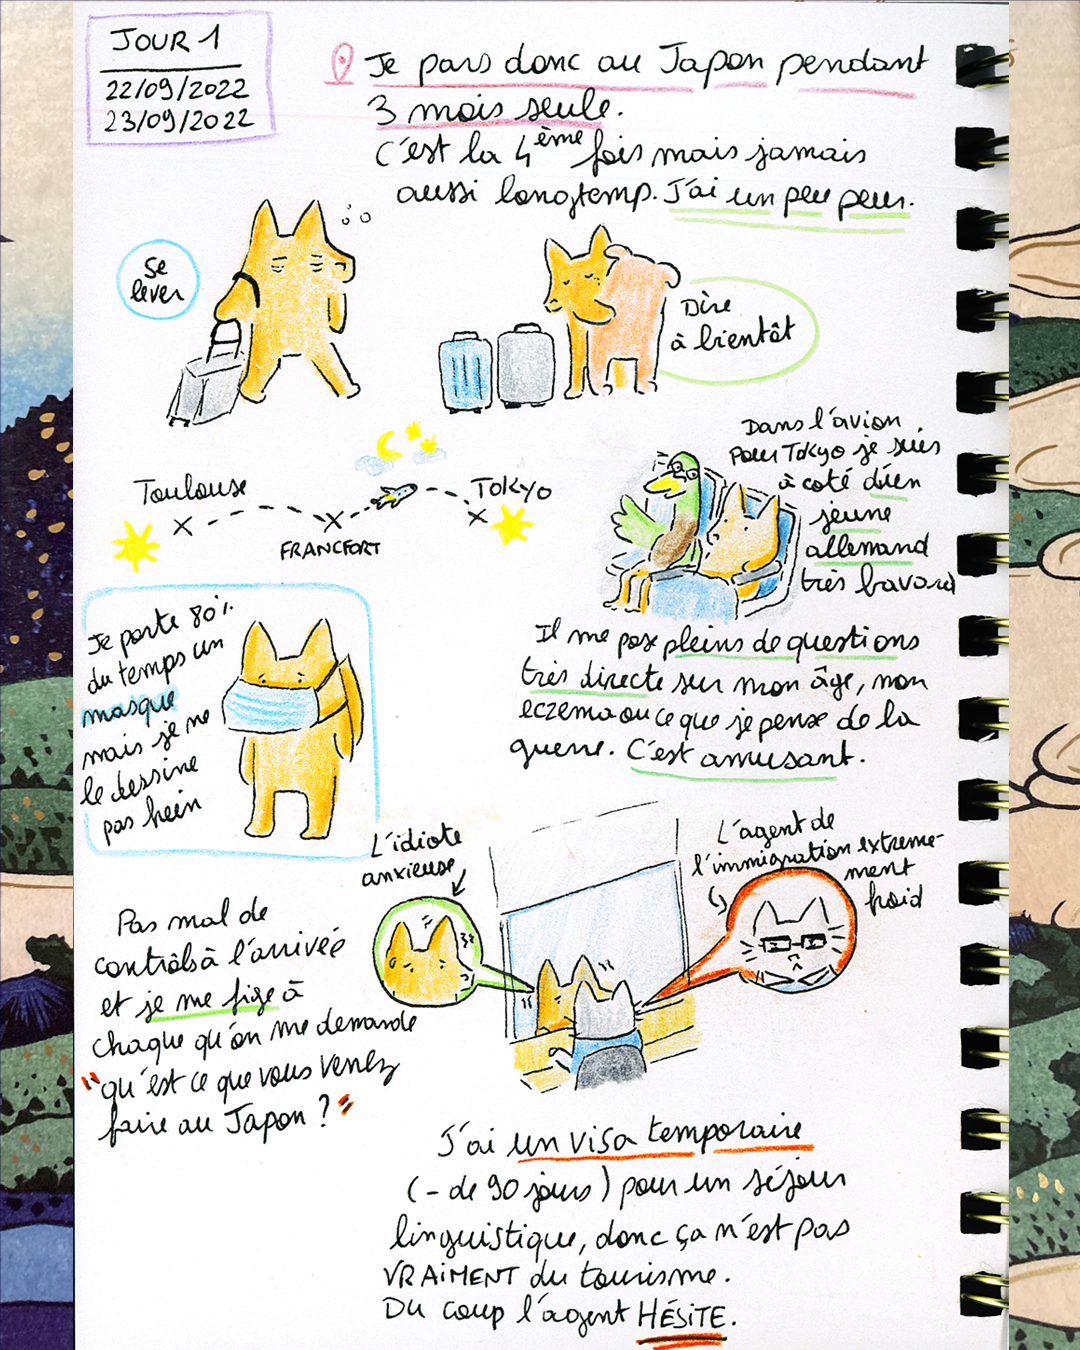 JOUR 1
22/09/2022
23/09/2022
Je pars donc au Japon pendant
3 mois seule.
C'est la 4ème fois mais jamais
aussi longtemp. J'ai un peu peur.
Se
lever
Dire
à bientôt
Toulouse
FRANCFORT
TOKYO
Dans l'avion
pour Tokyo je suis
à coté d'un
jeune
allemand
très bavard
Il me pose pleins de questions
très directe sur mon âge, mon
eczema ou ce que je pense de la
guerre. C'est amusant.
Je porte 80%
du temps un
masque
mais je ne
le dessine
pas hein
L'idiote
anxieuse
L'agent de
l'immigration extreme-
ment
froid
Pas mal de
contrôls à l'arrivée
et je me fige à
chaque qu'on me demande
"qu'est ce que vous venez
faire au Japon ?"
J'ai un visa temporaire
(- de 90 jours) pour un séjour
linguistique, donc ça n'est pas
VRAIMENT du tourisme.
Du coup l'agent HÉSITE.